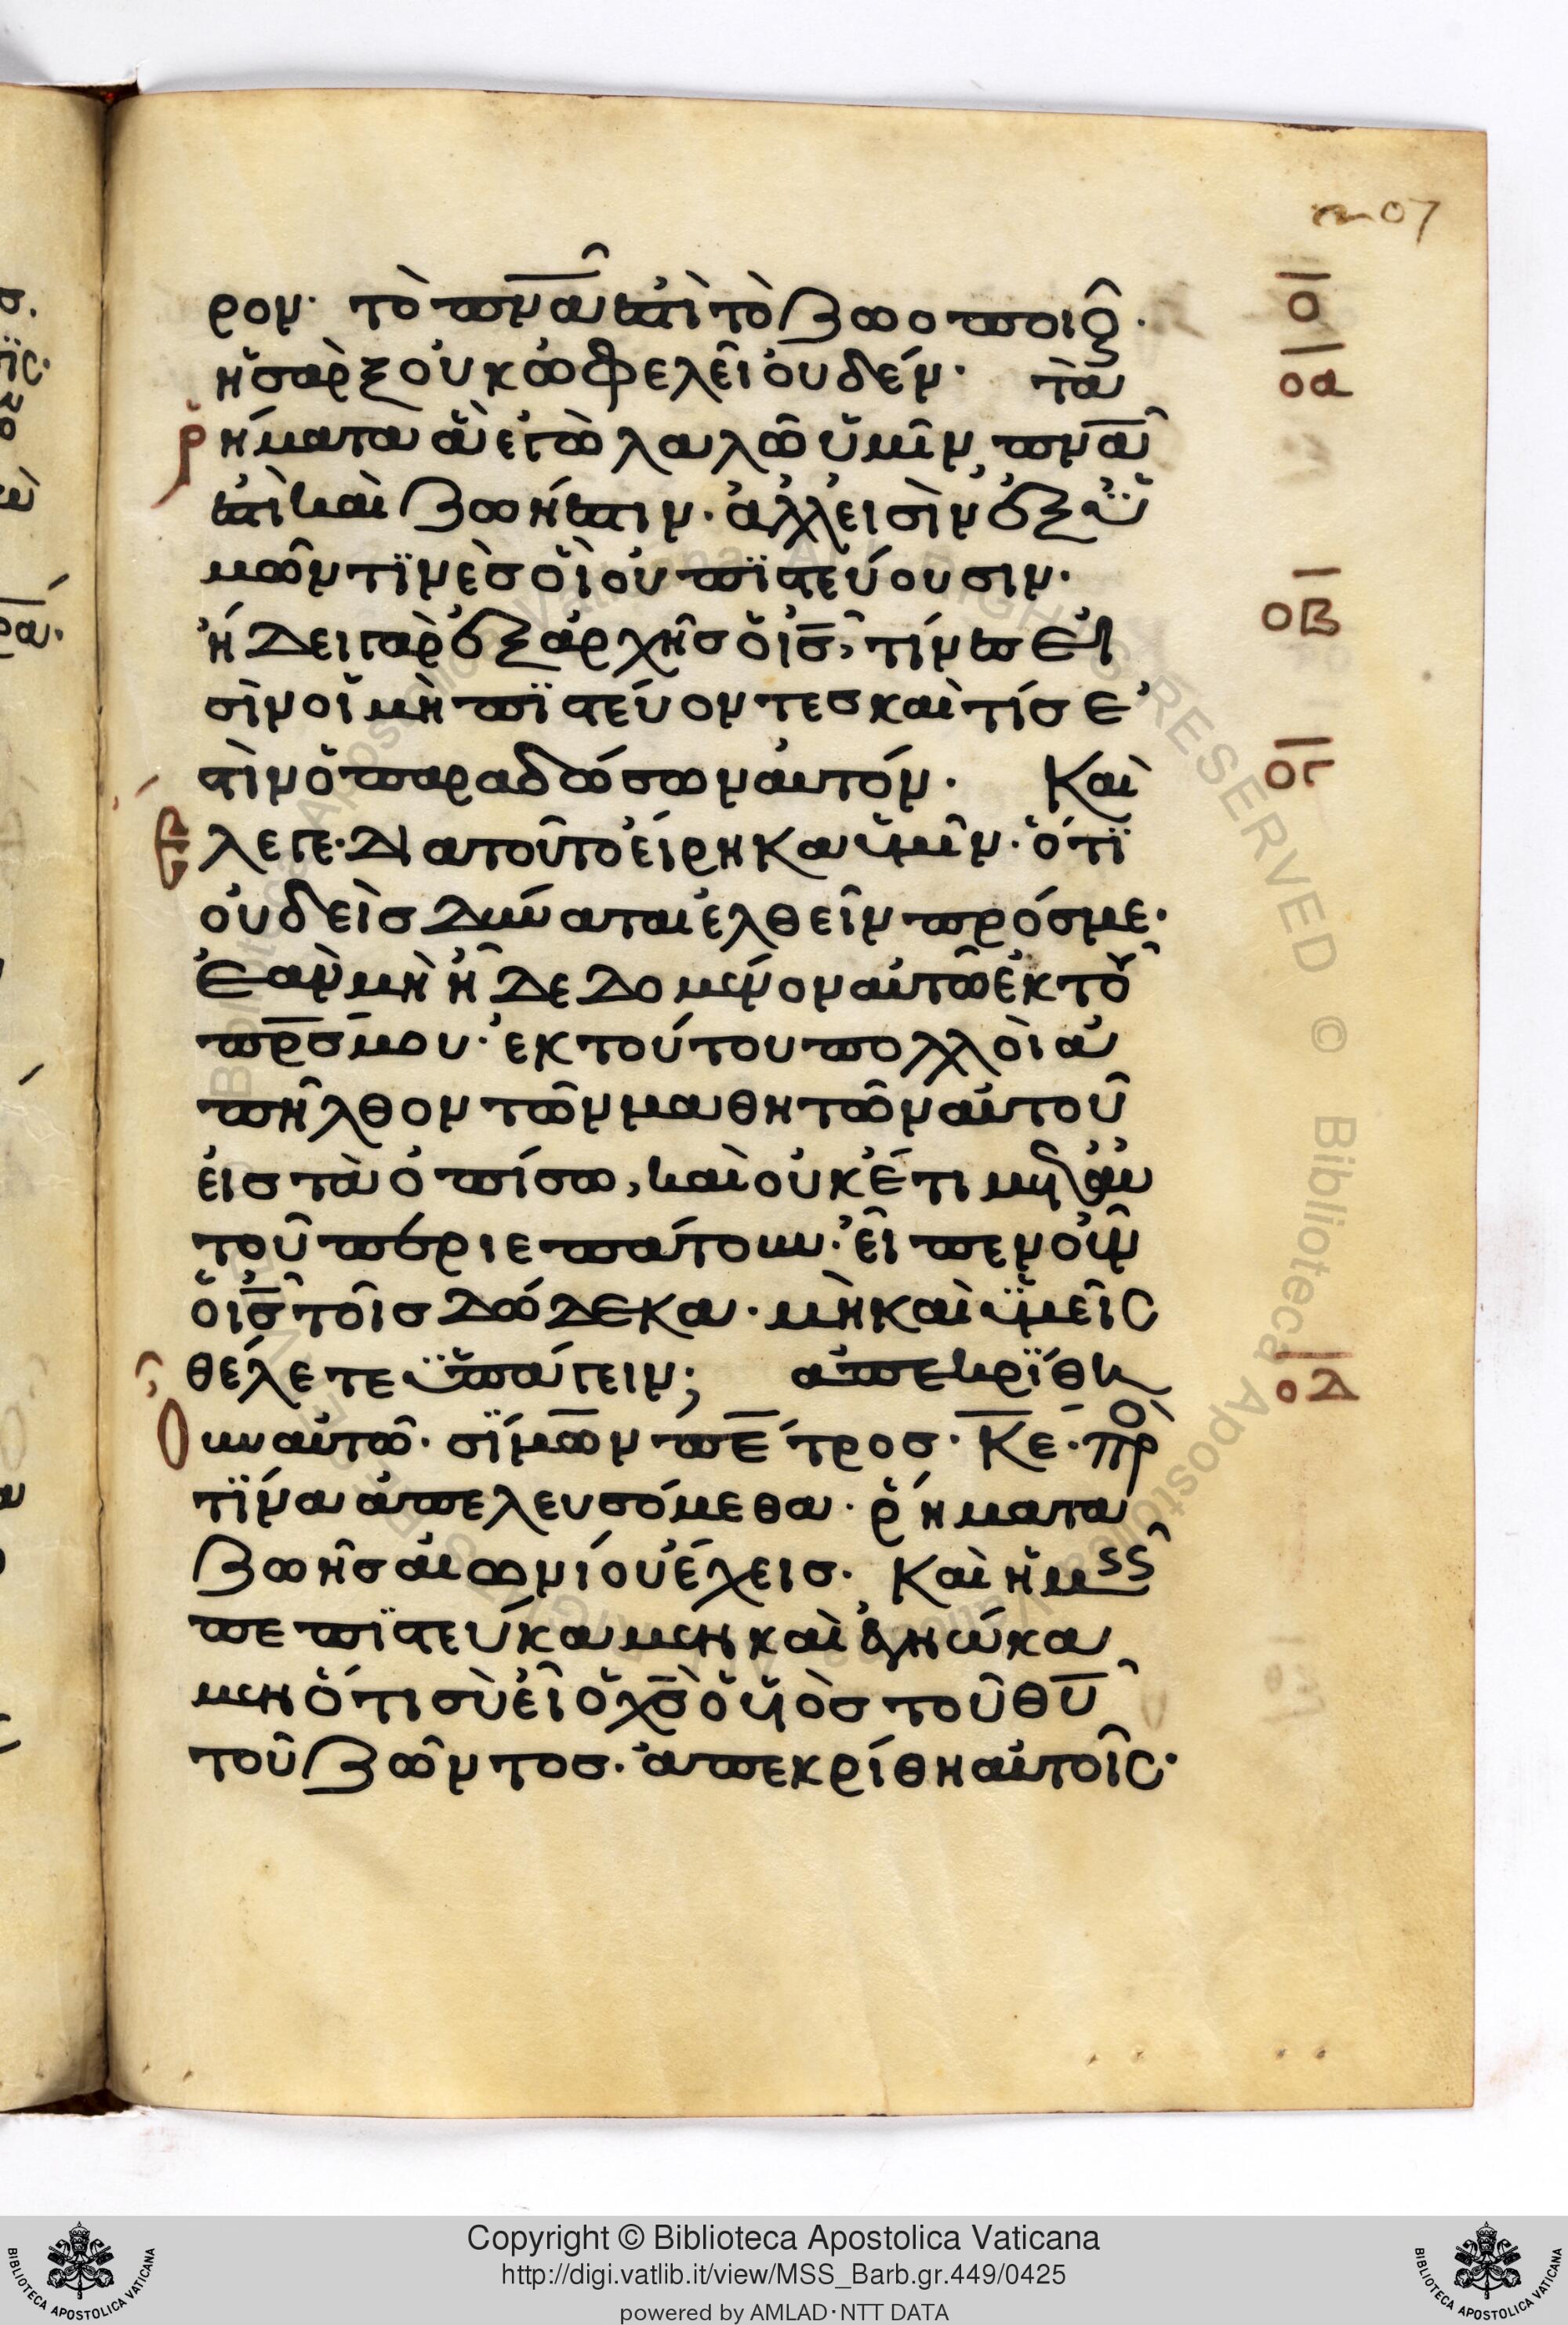 207
ρον· τὸ πν̅α̅ ἐστὶ τὸ ζωοποιοῦν·
ο̅
ἡ σὰρξ οὐκ ὠφελεῖ οὐδέν· τὰ
ο̅α̅
ῥήματα ἃ ἐγὼ λαλῶ ὑμῖν, πν̅α̅
ἐστὶ καὶ ζωή ἐστιν· ἀλλ εἰσὶν ἐξ ὑ
μῶν τϊνὲσ οἳ οὐ πϊστεύουσιν·
ἤδει γὰρ ἐξ ἀρχῆσ ὁ ι̅σ̅, τίνεσ εἰ
ο̅β̅
σὶν οἱ μὴ πϊστεύοντεσ καὶ τίσ ἐ
στὶν ὁ παραδώσων αὐτόν· Καὶ
ο̅γ̅
ἔλεγε· διατοῦτο εἴρηκα ὑμῖν· ὅτϊ
οὐδεὶσ δύναται ἐλθεῖν πρόσ με·
ἐὰν μὴ ἦ δεδομένον αὐτῶ ἐκ τοῦ
πρ̅σ̅ μου· ἐκ τούτου πολλοὶ ἀ
πῆλθον τῶν μαθητῶν αὐτοῦ
εἰσ τὰ ὀπίσω, καὶ οὐκέτι μετ αὐ
τοῦ περιεπάτουν· εἶπεν οὖν
ὁ ι̅σ̅ τοῖσ δώδεκα· μὴ καὶ ὑμεῖσ
θέλετε ὑπάγειν; ἀπεκρΐθη
ο̅δ̅
οὖν αὐτῶ· σϊμων πέτροσ· κ̅ε̅· πρὸς
τϊνα ἀπελευσόμεθα· ῥήματα
ζωῆσ αἰωνίου ἔχεισ· Καὶ ἡμεῖς
πεπϊστεύκαμεν καὶ ἐγνώκα
μεν ὅτι σὺ εἶ ὁ χ̅σ̅ ὁ υἱὸσ τοῦ θ̅υ̅
τοῦ ζῶντοσ· ἀπεκρίθη αὐτοῖσ·
Copyright © Biblioteca Apostolica Vaticana
http://digi.vatlib.it/view/MSS_Barb.gr.449/0425
powered by AMLAD·NTT DATA
BIBLIOTECA APOSTOLICA VATICANA
BIBLIOTECA APOSTOLICA VATICANA